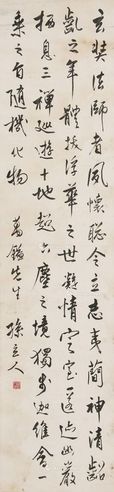 玄奘法師者夙懷聰令立志夷簡神清齠
齔之年體拔浮華之世凝情定室匿迹幽巖
栖息三禪巡遊十地超六塵之境獨步迦維會一
乘之旨隨機化物 先生 孫立人